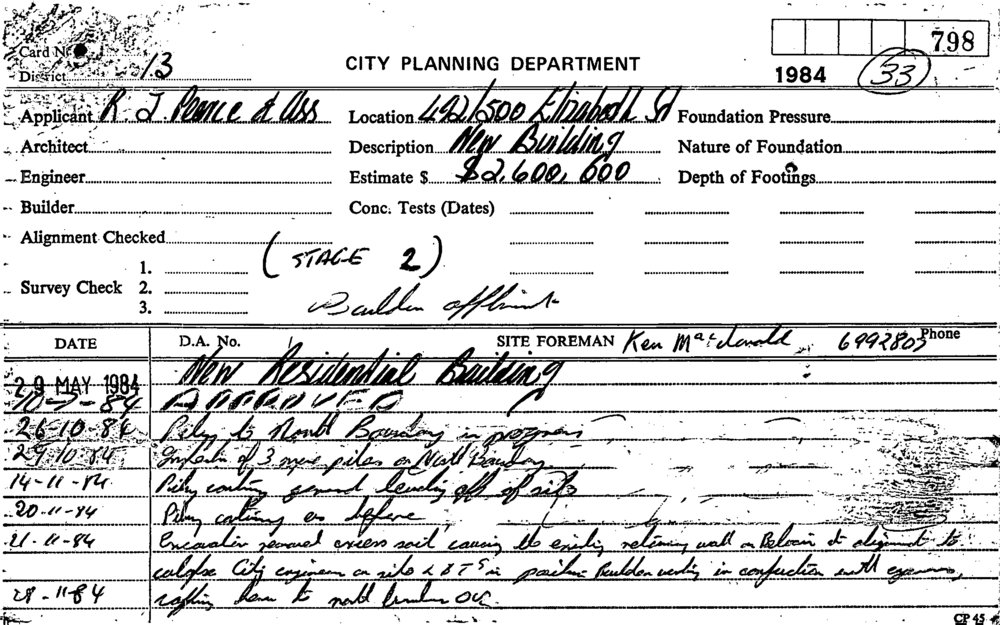 798
Card No
District 13
CITY PLANNING DEPARTMENT
1984 33
Applicant R J. Pearce & Ass Location 492/500 Elizabeth St Foundation Pressure
Architect Description New Building Nature of Foundation
Engineer Estimate $ $2,600,000 Depth of Footings
Builder Conc. Tests (Dates)
Alignment Checked
(STAGE 2)
1.
Survey Check 2.
3.
Builder
DATE D.A. No. SITE FOREMAN Ken MacDonald 6992803 Phone
New Residential Building
29 MAY 1984
10-7-84 APPROVED
26-10-84 Piling to North Boundary in progress
29-10-84 of 3 more piles on North Boundary
14-11-84 Piling general levelling off of site
20-11-84 Piling as before
21-11-84 Excavator removed excess soil causing the existing retaining wall on St alignment to
collapse City engineer on site in position Builder working in conjunction with
28-11-84 to north
CP 45